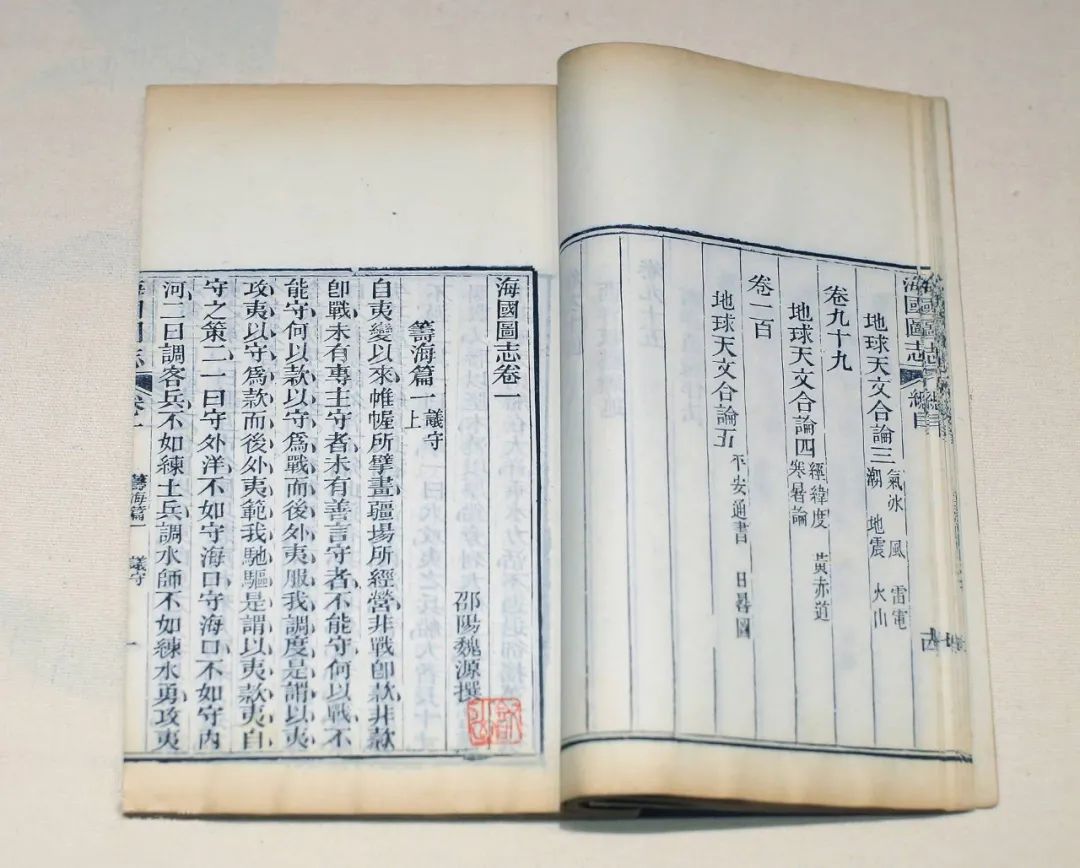 海國圖志
總目
四
地球天文合論三 氣 冰 風 雷電
潮 地震 火山
卷九十九
地球天文合論四 經緯度 黃赤道
寒暑論
卷一百
地球天文合論五 平安通書 日晷圖
海國圖志卷一
邵陽魏源撰
籌海篇一 議守上
自夷變以來帷幄所擘畫疆場所經營非戰卽款非款
卽戰未有專主守者未有善言守者不能守何以戰不
能守何以款以守爲戰而後外夷服我調度是謂以夷
攻夷以守爲款而後外夷範我馳驅是謂以夷款夷自
守之策二一曰守外洋不如守海口守海口不如守內
河二曰調客兵不如練土兵調水師不如練水勇攻夷
海國圖志 卷一 籌海篇一 議守 一